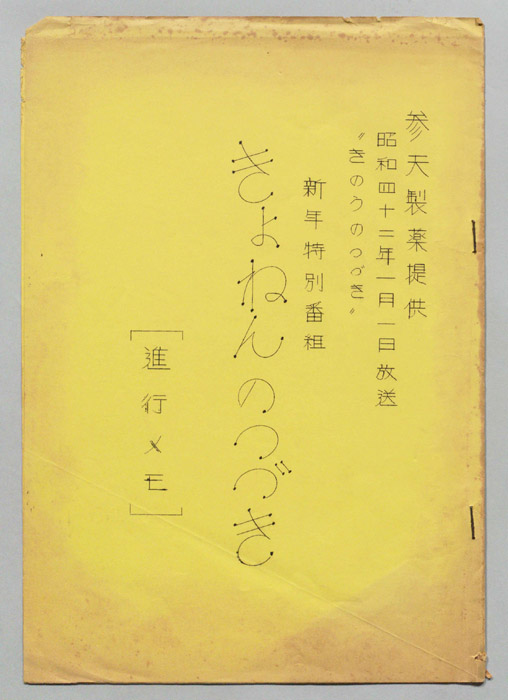 参天製薬提供
昭和四十二年一月一日放送
〝きのうのつづき〟
新年特別番組
きよねんのつづき
[進行メモ]